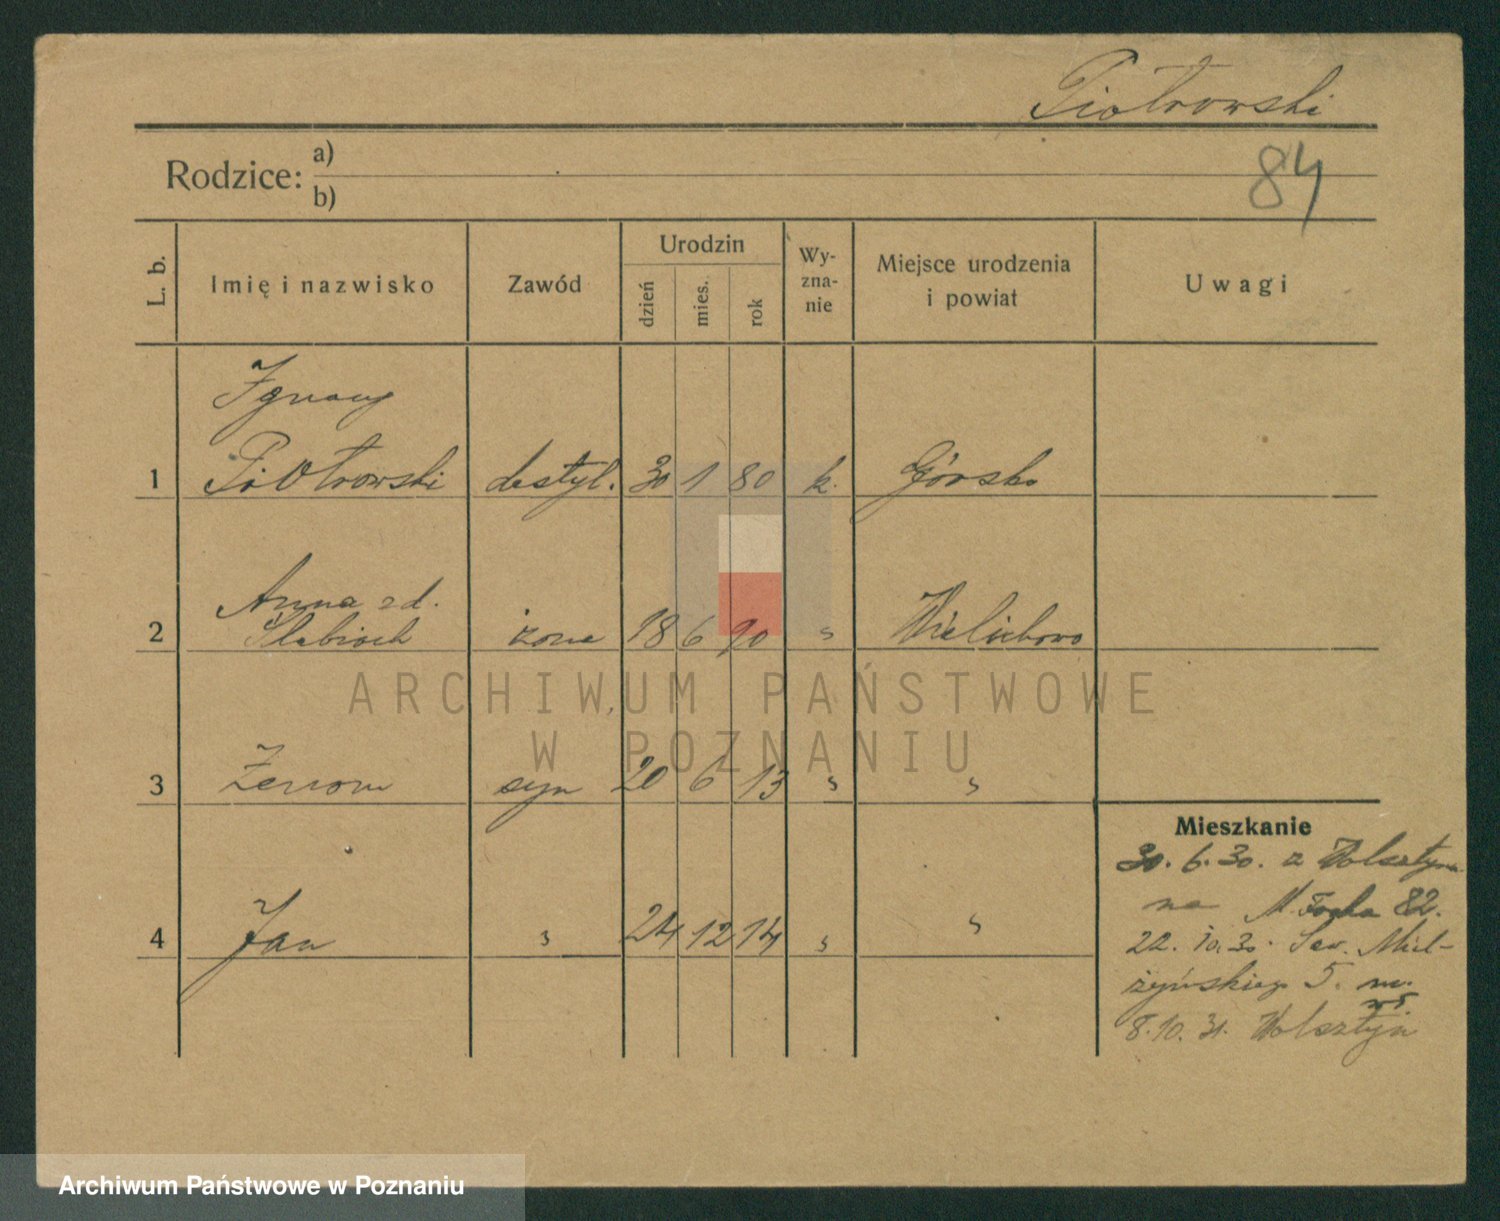 Piotrowski
Rodzice: a)
b)
84
L. b.
Imię i nazwisko
Zawód
Urodzin
dzień
mies.
rok
Wy-
zna-
nie
Miejsce urodzenia
i powiat
Uwagi
Ignacy
1 Piotrowski destyl. 30 1 80 k. Górsko
Anna zd.
2 żona 18 6 90 " Wielichowo
3 Zenon syn 20 6 13 " "
4 Jan " 24 12 14 " "
Mieszkanie
30. 6. 30. z Wolsztyna
na M. Focha 82.
22. 10. 30. Sew. Miel-
żyńskiego 5. m.
8. 10. 31. Wolsztyn
ARCHIWUM PAŃSTWOWE
W POZNANIU
Archiwum Państwowe w Poznaniu